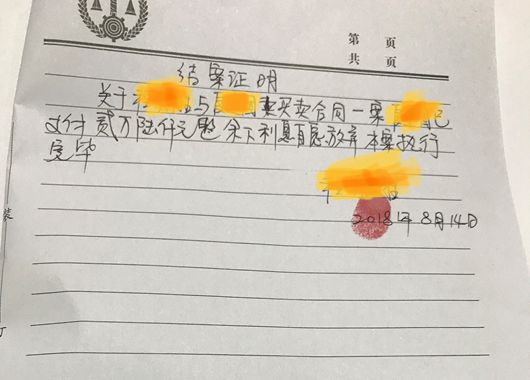 第 页
共 页
结案证明
关于 与 买卖合同一案 已
支付贰万陆仟元 余下利息自愿放弃 本案执行
完毕
2018年8月14日
装